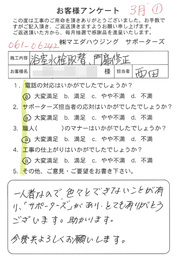 お客様アンケート
3月①
この度は工事のご用命を頂きましてありがとうございました。お手数で
すがご記入頂き、ご返送頂きますようお願い申し上げます。
ご返送いただいた方から、毎月抽選で感謝品を産直いたします。
㈱マエダハウジング サポーターズ
工事内容 浴室水栓取替、門扉修正
お客様名 担当者 西田
1. 電話の対応はいかがでしたでしょうか？
a.大変満足 b.満足 c.やや不満 d.不満
2. サポーターズ担当者の応対はいかがでしたでしょうか？
a.大変満足 b.満足 c.やや不満 d.不満
3. 職人( )のマナーはいかがでしたでしょうか？
a.大変満足 b.満足 c.やや不満 d.不満
4. 工事の仕上がりはいかがでしたでしょうか？
a.大変満足 b.満足 c.やや不満 d.不満
5. その他、ご意見・ご要望をお書き下さい。
一人者なので、色々とできないことがあ
り、「サポーターズ」があり、とてもありがとう
ございます。助かります。
今後共よろしくお願いします。